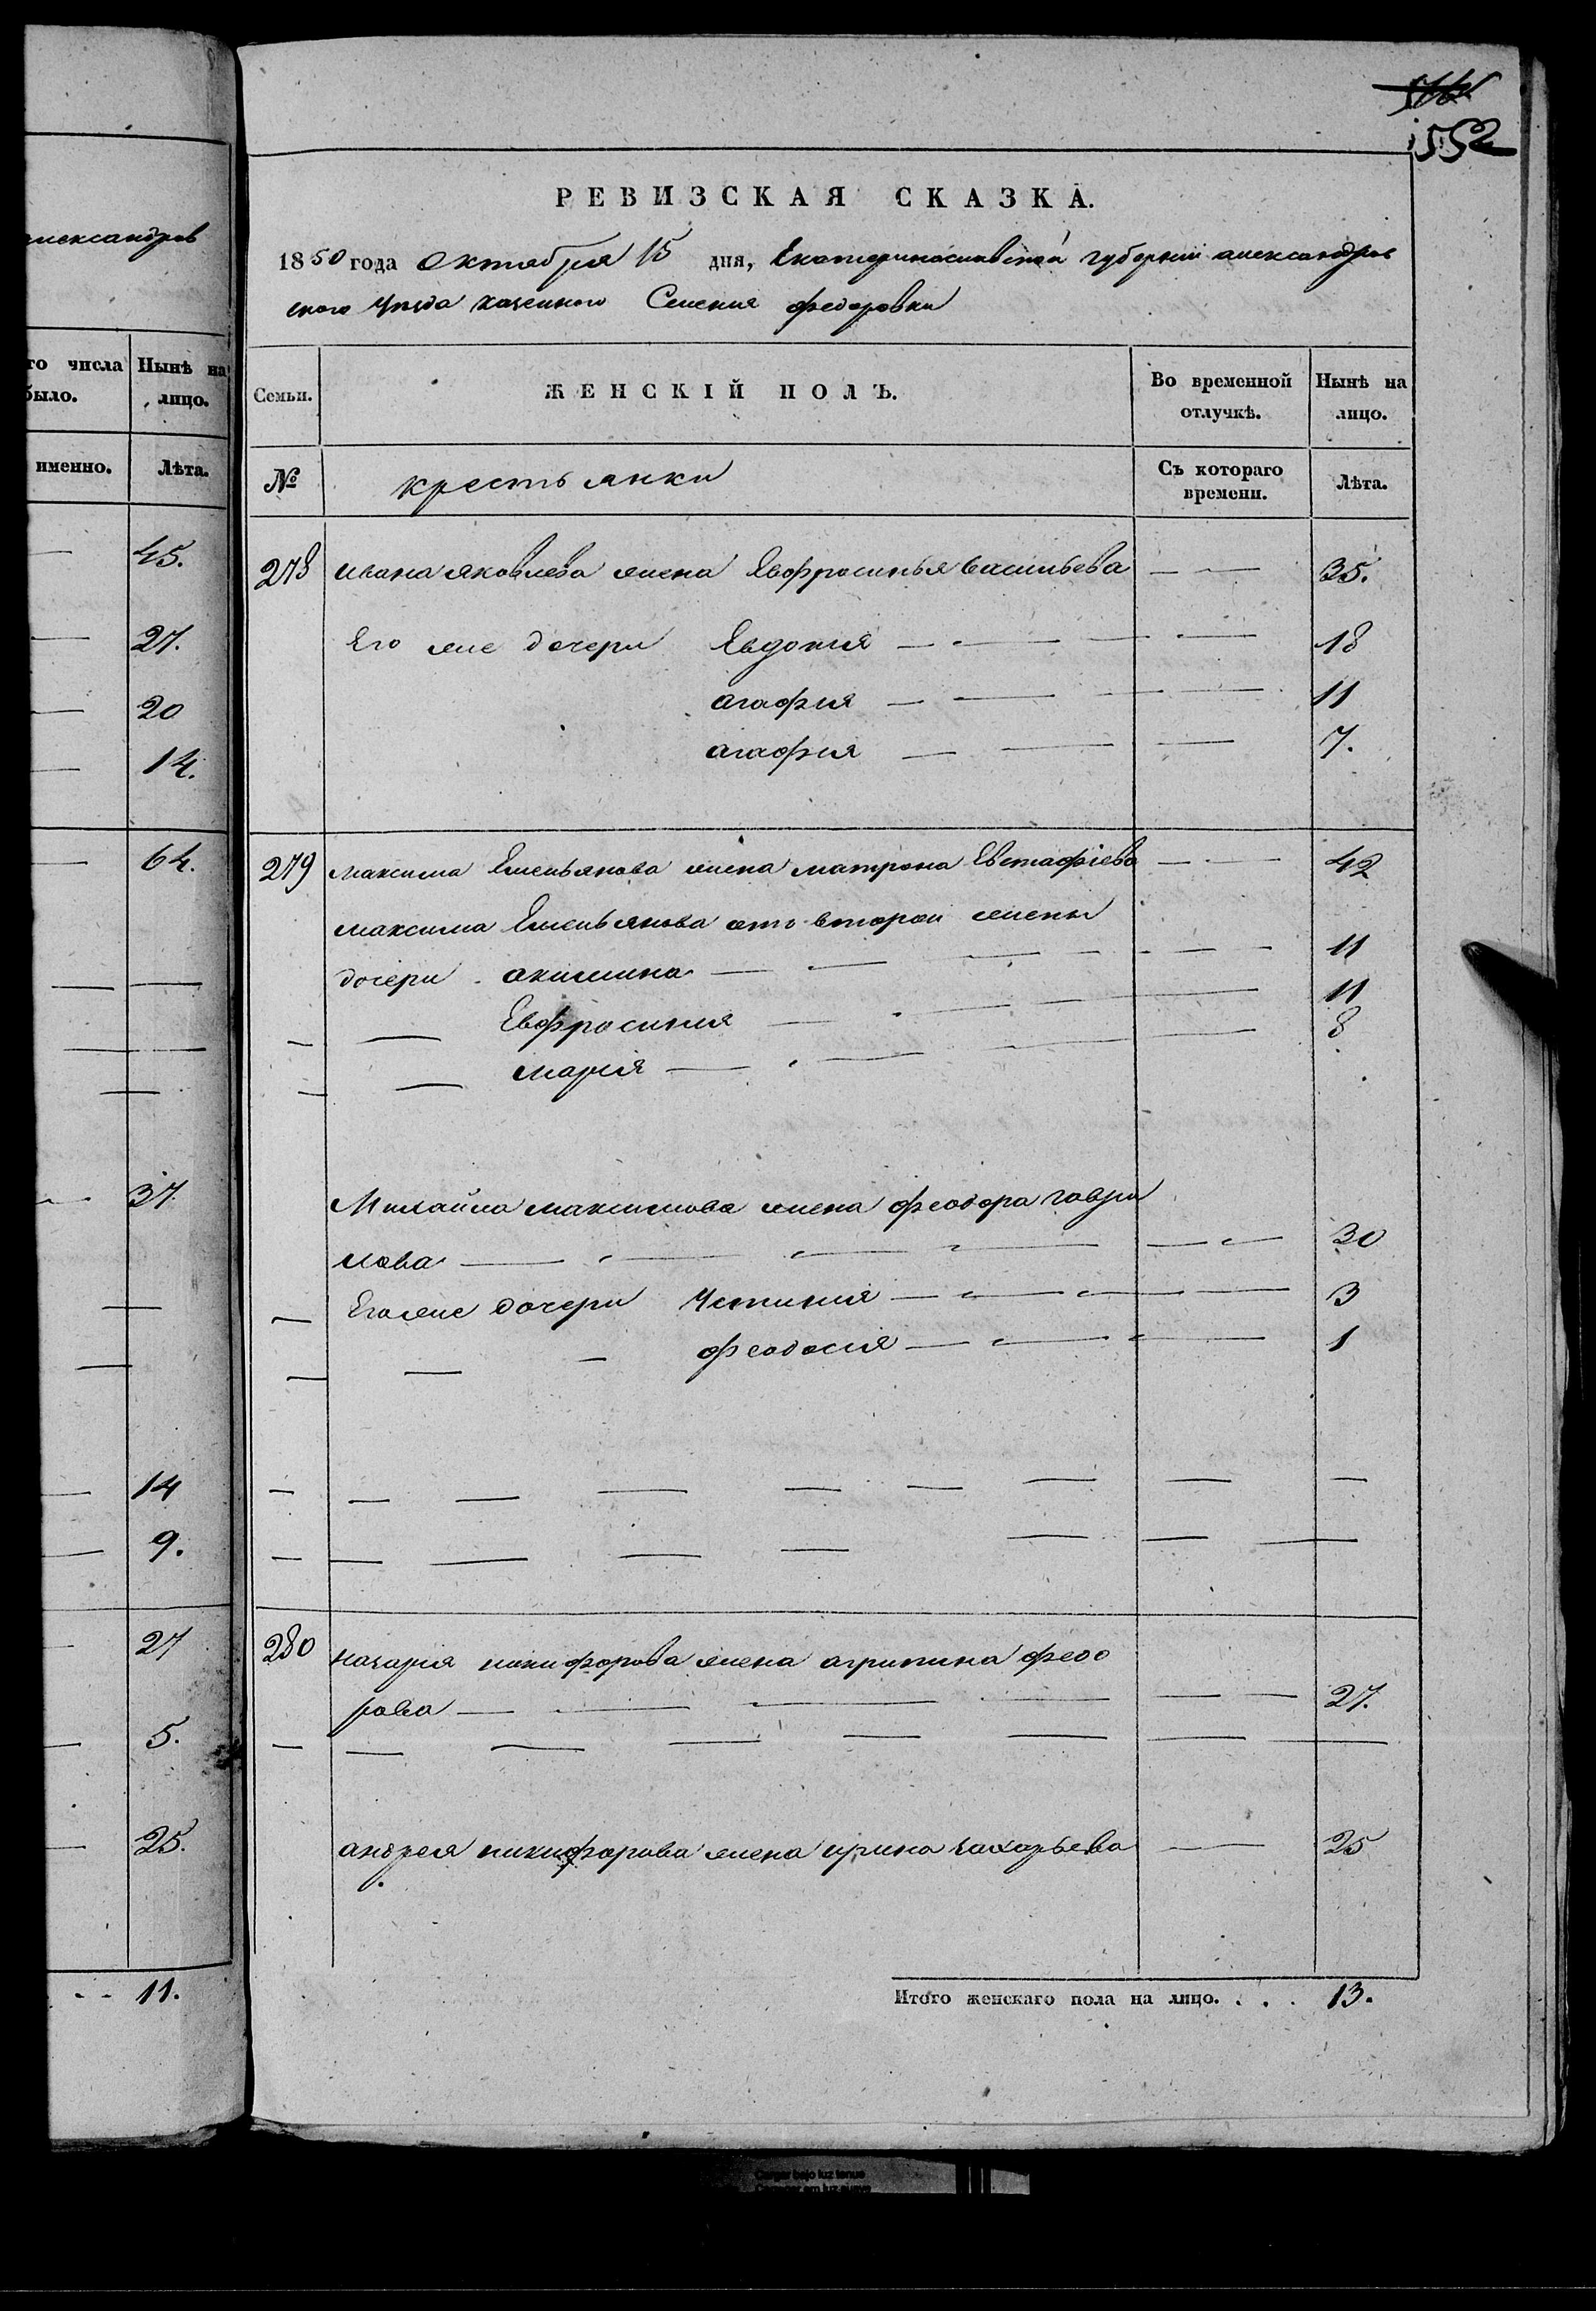 александров
го числа Нынѣ на
было. лицо.
именно. Лѣта.
45.
27.
20
14.
64.
37
14
9.
27
5.
25.
11.
552
РЕВИЗСКАЯ СКАЗКА.
1850 года Октября 15 дня, Екатеринославской губернии александров
ского Уезда казенного Селения федоровки
Семьи. ЖЕНСКІЙ ПОЛЪ. Во временной отлучкѣ. Нынѣ на лицо.
№ крестьянки Съ котораго времени. Лѣта.
278 ивана яковлева жена Евфросинья васильева 35.
Его же дочери Евдокия 18
агафия 11
агафия 7.
279 максима Емельянова жена матрона Евстафіева 42
максима Емельянова отъ второй жены
дочери акилина 11
Евфросиния 11
мария 8
Михайла максимова жена феодора гаври
лова 30
Его же дочери Устиния 3
феодосия 1
280 назария никифорова жена агрипина федо
рова 27.
андрея никифорова жена ирина захарьева 25
Итого женскаго пола на лицо. . . . 13.
Cargar bajo luz tenue